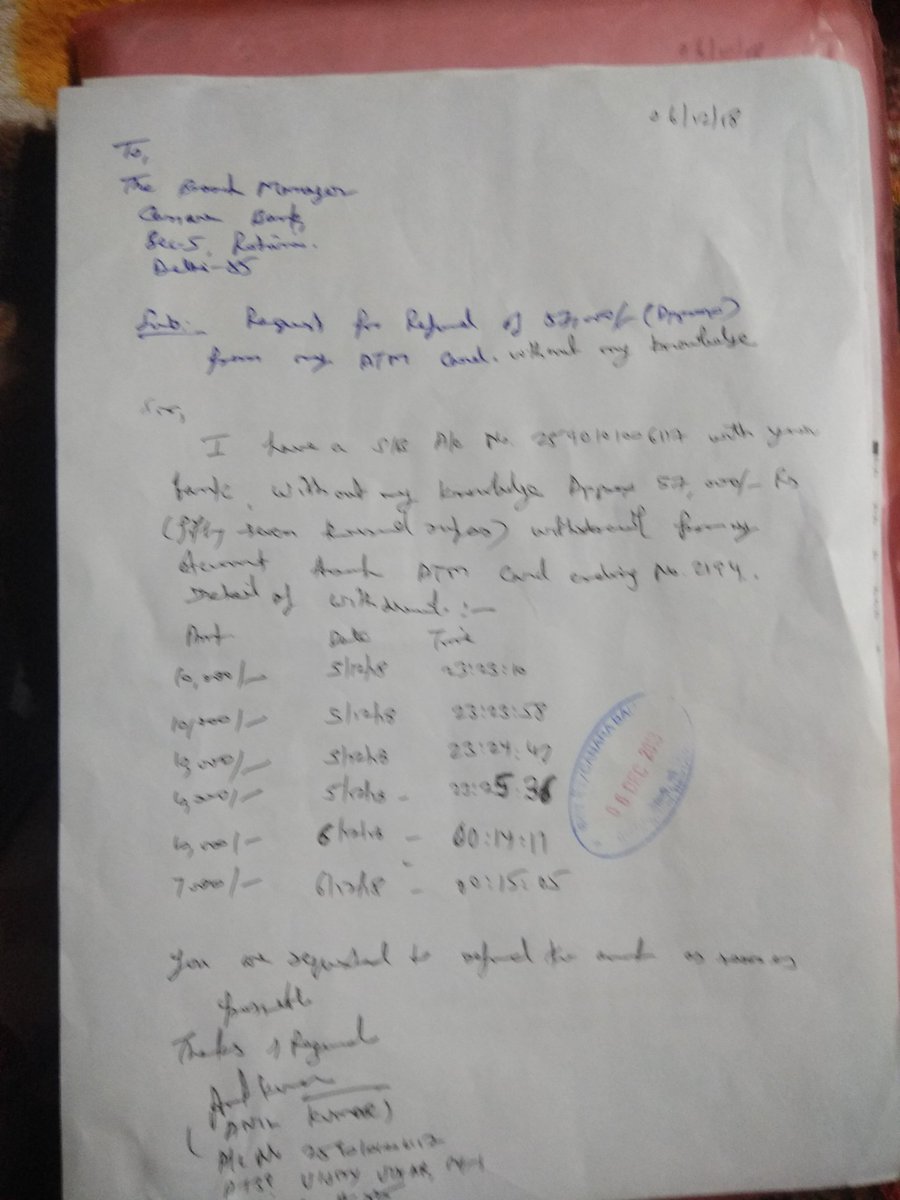 06/12/18
To,
The Branch Manager
Canara Bank,
Sec-5, Rohini.
Delhi-85
Sub:- Request for Refund of 57,000/- (Approx)
from my ATM Card. without my knowledge
Sir,
I have a S/B A/c No. with your
bank, without my knowledge Approx 57,000/- Rs
(fifty seven thousand rupees) withdrawl from my
Account ATM Card ending No. 2194.
Detail of withdrawl :-
Amt Date Time
10,000/- 5/12/18 23:23:10
10,000/- 5/12/18 23:23:58
10,000/- 5/12/18 23:24:47
10,000/- 5/12/18 - 23:25:36
10,000/- 6/12/18 - 00:14:17
7000/- 6/12/18 - 00:15:05
CANARA BANK
06 DEC 2018
You are requested to refund the amount as soon as
possible
Thanks & Regards
Anil Kumar
(ANIL KUMAR)
A/c No